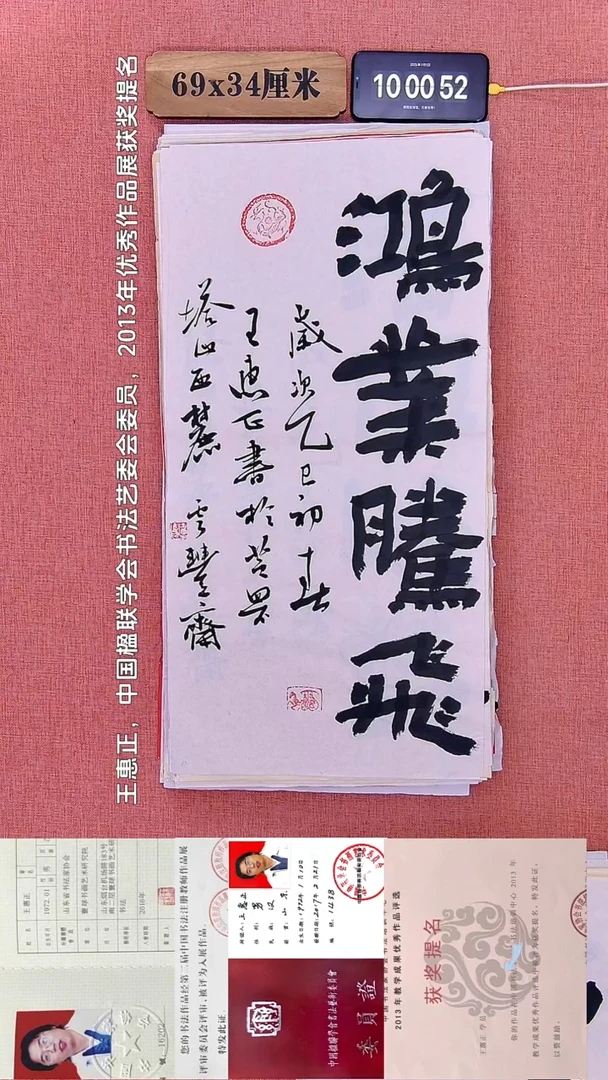 69x34厘米
10 00 52
王惠正，中国楹联学会书法艺委会委员，2013年优秀作品展获奖提名
鸿業騰飛
歲次乙巳初春
王惠正書於芝罘
塔山西麓 雲豐齋
王惠正
1972.01
山东省书法家协会
您的书法作品经第二届中国书法注册教师作品展
评审委员会评审，被评为入展作品，
特发此证
中国楹聯學會書法藝術委員會
委員證
2013年教学成果优秀作品评选
获奖提名
王惠正 学员
以资鼓励。